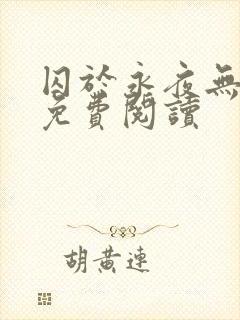 囚於永夜無
免費閱讀
胡黃連